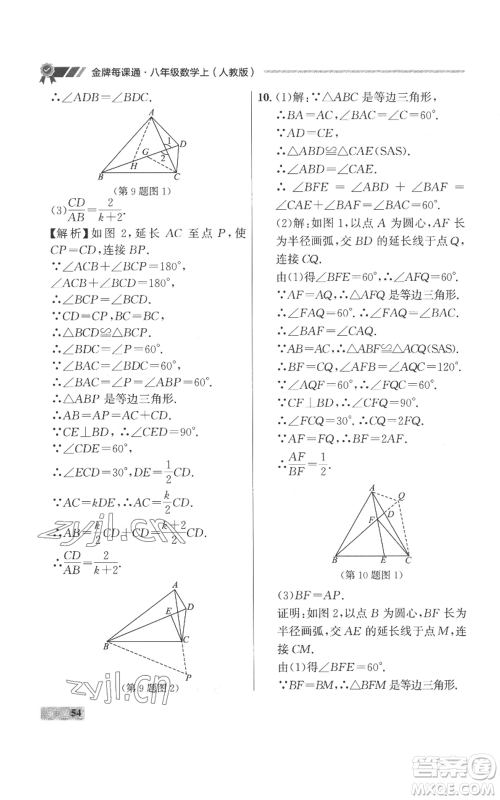 金牌每课通·八年级数学上(人教版)
∴∠ADB=∠BAC.
A
D
1
G
2
B
H
C
(第9题图1)
(3)CD/AB=2/(k+2).
【解析】如图2,延长 AC 至点 P,使
CP=CD,连接 BP.
∵∠ACB+∠BCP=180°,
∠ACB+∠BCD=180°,
∴∠BCD=∠BCP.
∴△BCD≌△BCP.
∴∠BDC=∠P=60°.
∵∠BAC=60°,
∴△ABP 是等边三角形.
∴AB=AP=AC+CD.
∵CE⊥BD,
∵∠CDE=60°,
∴∠ECD=30°,DE=1/2CD.
∵AC=kDE,∴AC=k/2CD.
∴AB=k/2CD+CD=(k+2)/2CD.
∴CD/AB=2/(k+2).
A
D
E
B
C
P
(第9题图2)
10. (1)解:∵△ABC 是等边三角形,
∴BA=AC,∠BAC=∠C=60°.
∵AD=CE,
∴△ABD≌△CAE(SAS).
∴∠ABD=∠CAE.
∴∠BFE=∠ABD+∠BAE=
∠CAE+∠BAE=∠BAC=60°.
(2)解:如图1,以点 A 为圆心,AF 长
为半径画弧,交 BD 的延长线于点 Q,
连接 AQ,CQ.
由(1)得∠BFE=60°,∴∠AFQ=60°.
∵AF=AQ,∴△AFQ 是等边三角形.
∴∠FAQ=60°.∴∠FAQ=∠BAC.
∴∠BAF=∠CAQ.
∵AB=AC,∴△ABF≌△ACQ(SAS).
∴∠AFB=∠AQC=120°.
∵∠AQF=60°,∴∠CQF=60°.
∴∠FCQ=30°.∴CQ=2FQ.
∴AF/BF=1/2.
A
Q
D
F
B
E
C
(第10题图1)
(3)BF=AP.
证明:如图2,以点 B 为圆心,BF 长为
半径画弧,交 AE 的延长线于点 M,连
接 CM.
由(1)得∠BFE=60°.
∵BF=BM,∴△BFM 是等边三角形.
54
zyjl.cn
zyjl.cn